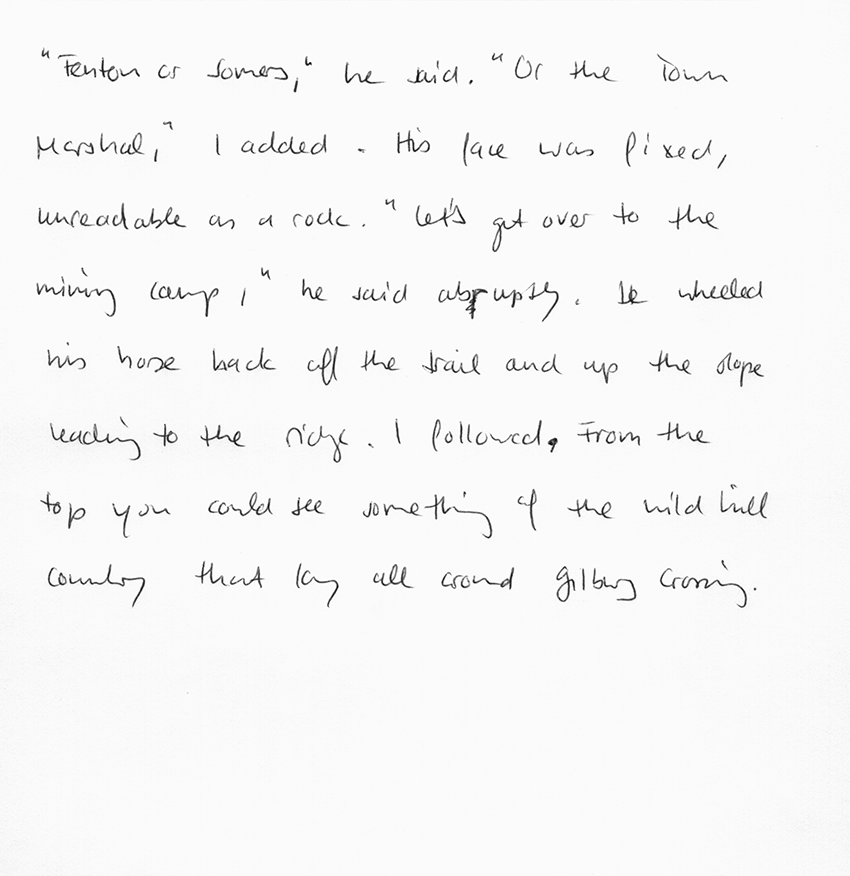 "Fenton or Somers," he said. "Or the Town
Marshal," I added. His face was fixed,
unreadable as a rock. "Let's get over to the
mining camp," he said abruptly. He wheeled
his horse back off the trail and up the slope
leading to the ridge. I followed. From the
top you could see something of the wild hill
country that lay all around Gilburg Crossing.